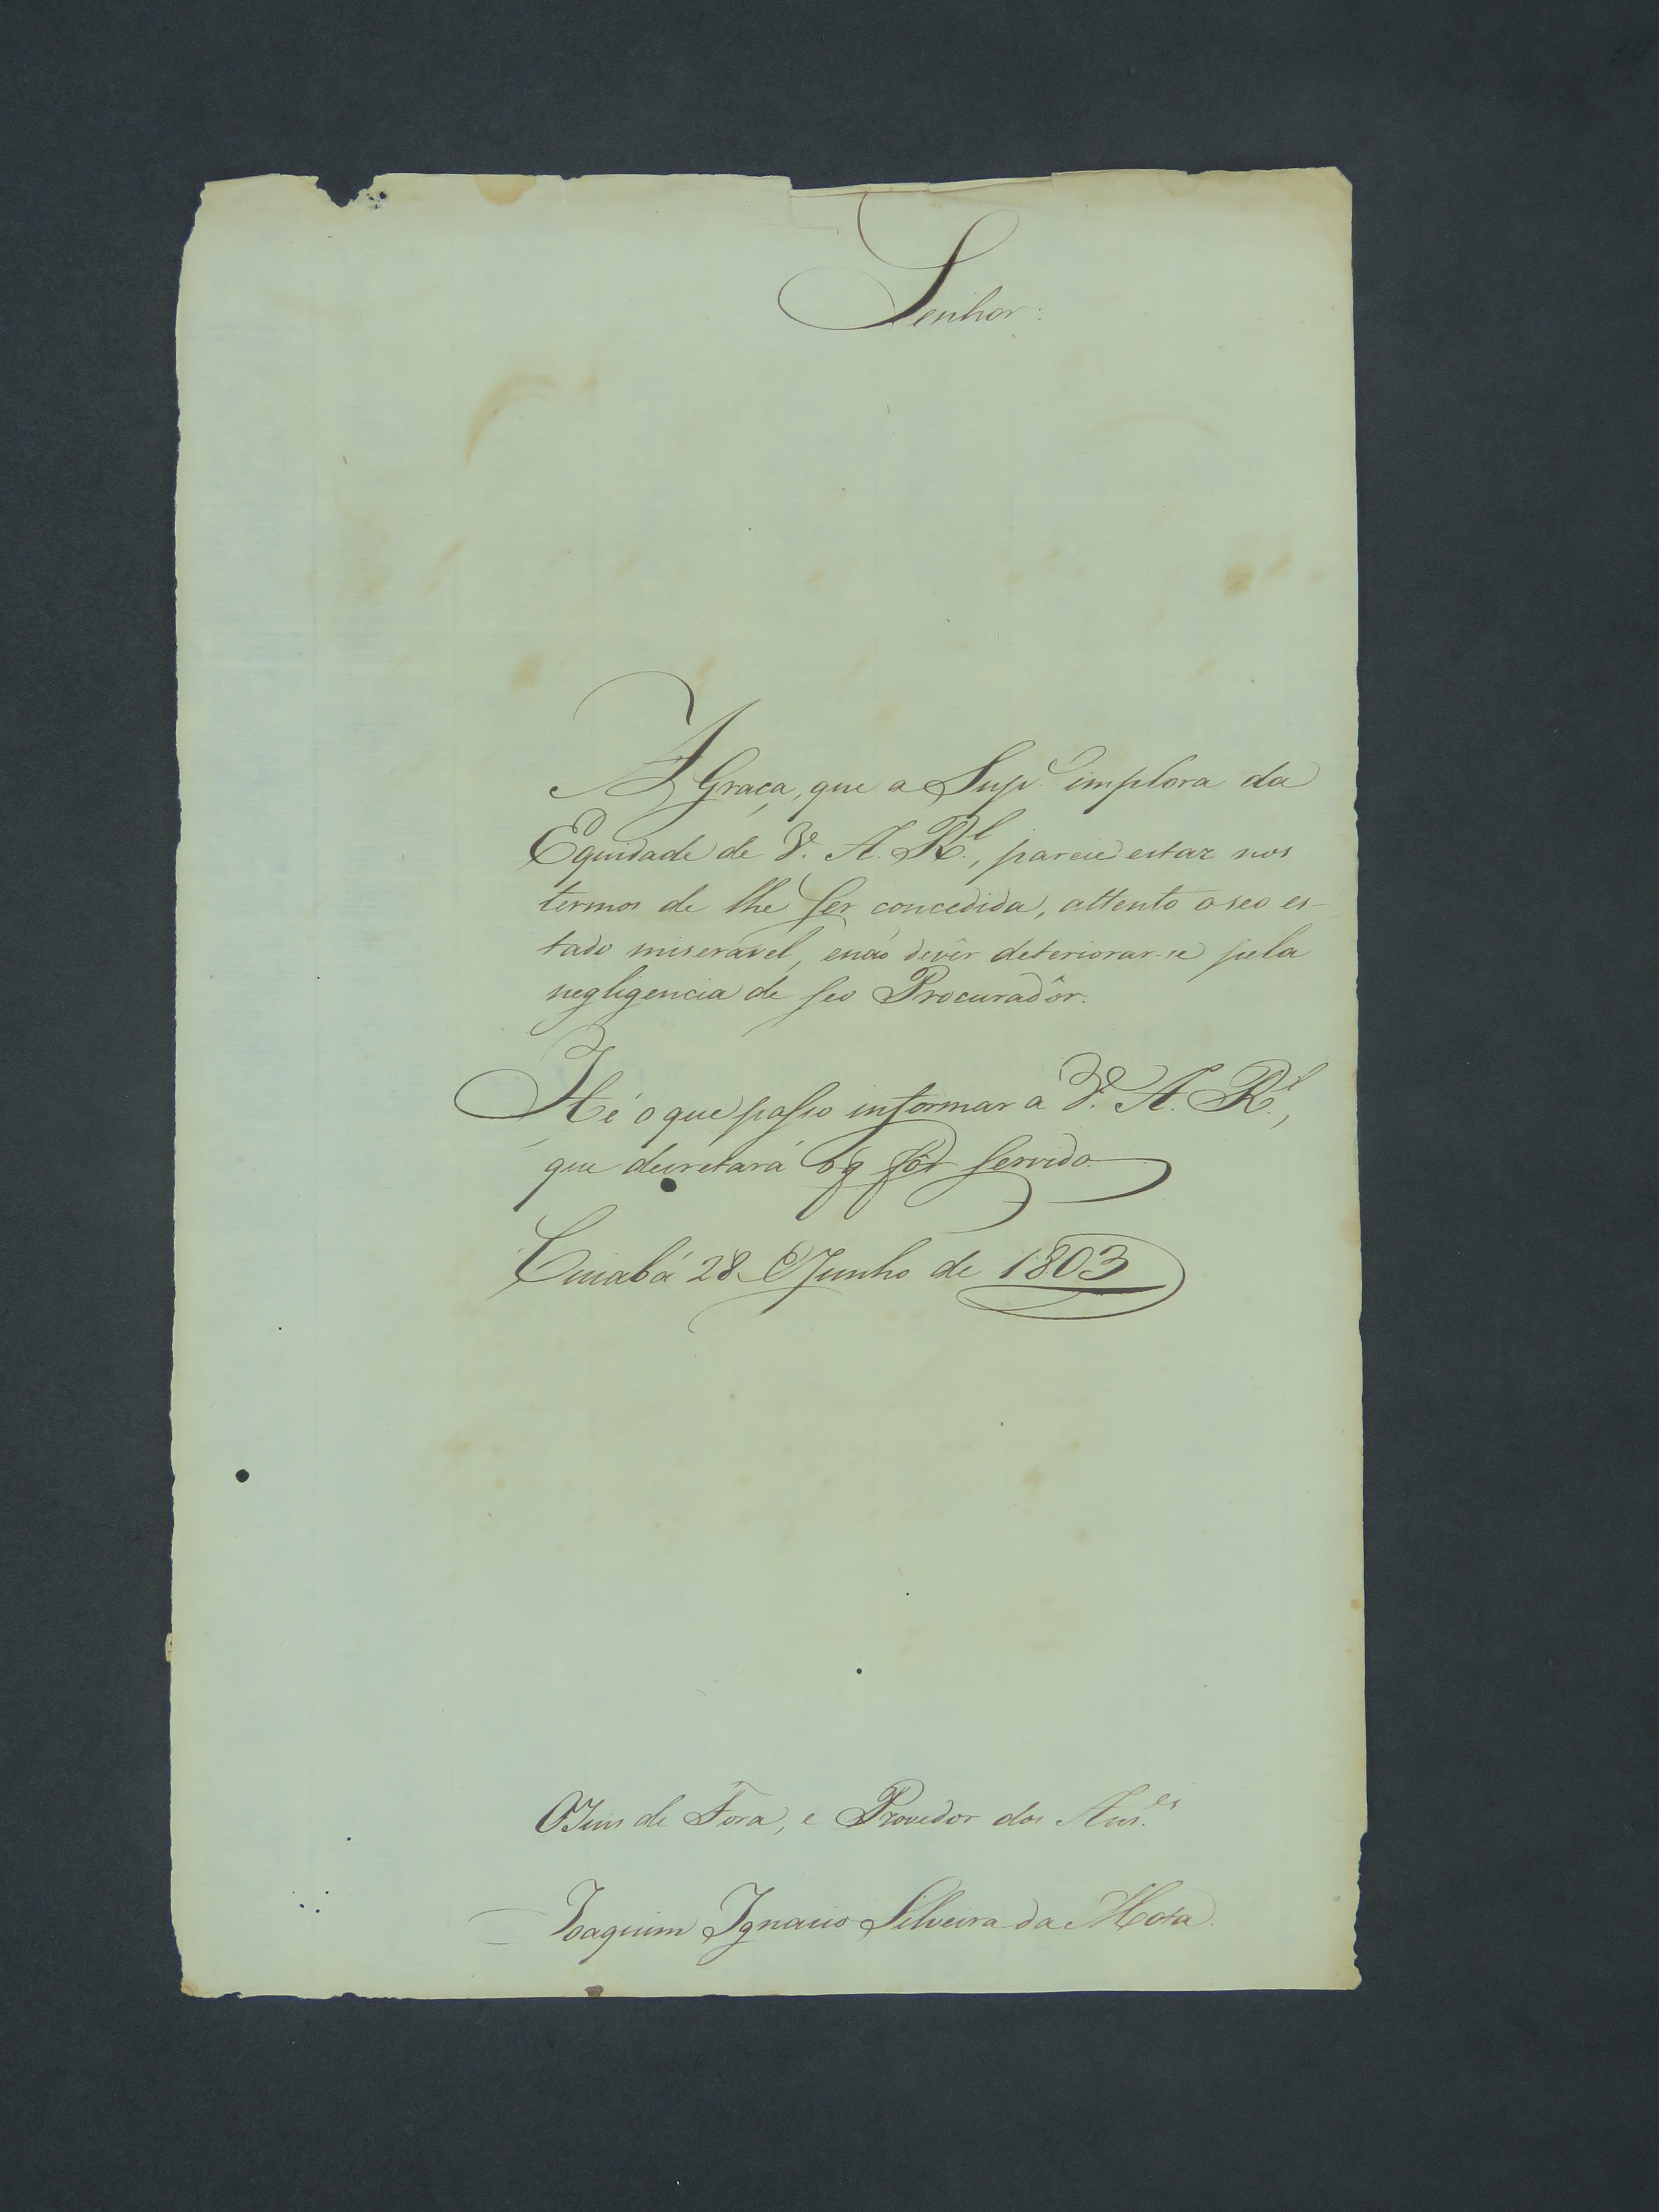 Senhor:
A Graça, que a Sup.e implora da
Equidade de V. A. R.l, parece estar nos
termos de lhe ser concedida, attento o seo es-
tado miserável, e não devêr deteriorar-se pela
negligencia de seo Procuradôr.
Hé o que posso informar a V. A. R.l,
que decretará o q fôr servido.
Cuiabá 28 Junho de 1803
O Juis de Fora, e Provedor dos Aus.es
Joaquim Ignacio Silveira da Mota.